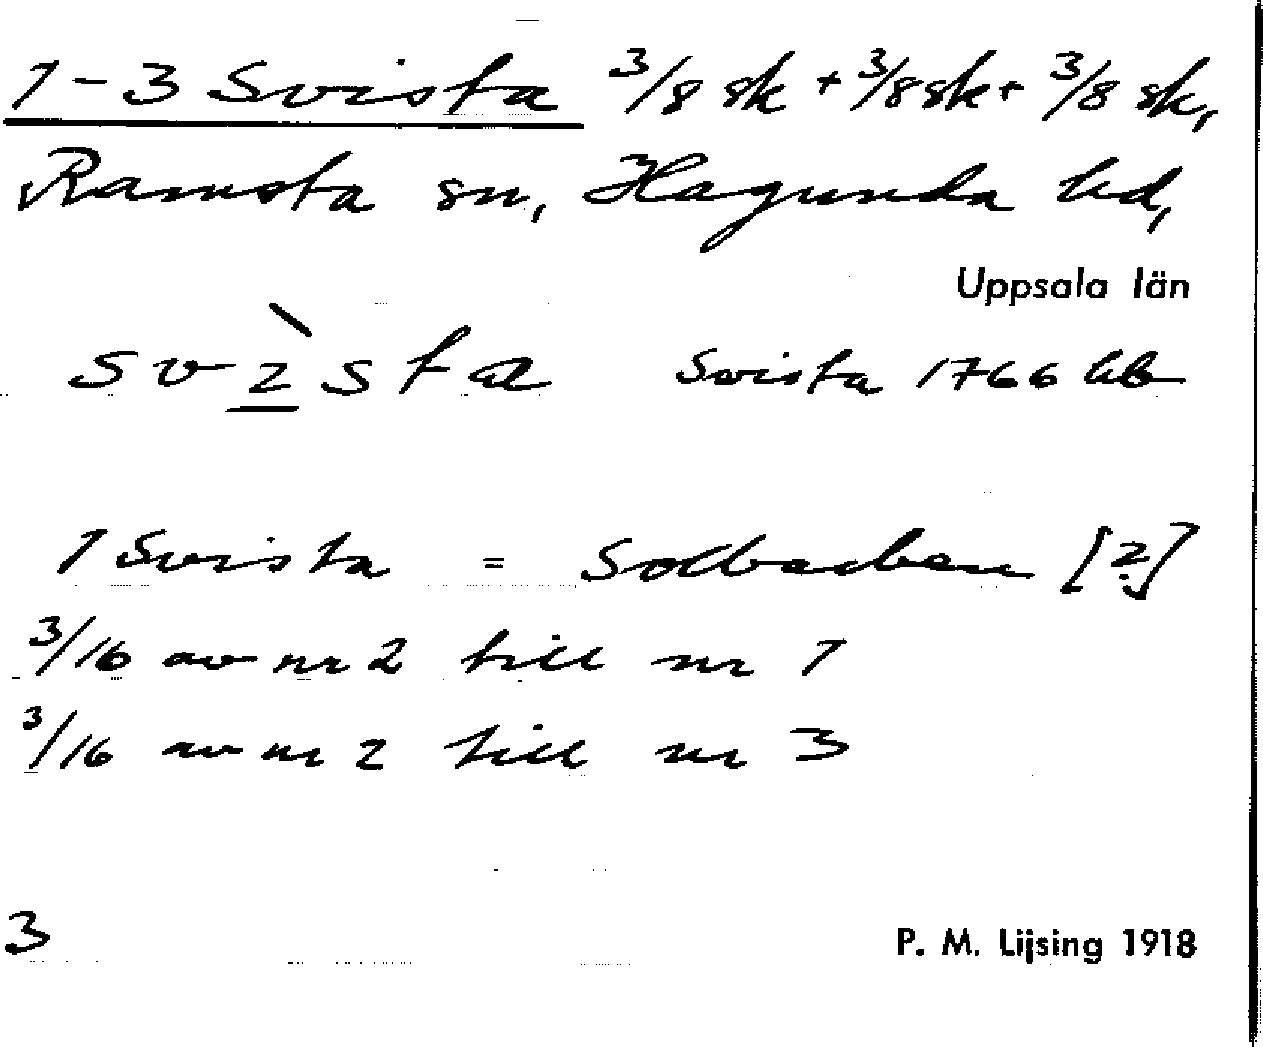 1-3 Svista 3/8 sk + 3/8 sk + 3/8 sk,
Ramsta sn, Hagunda hd,
Uppsala län
svı̀sta Svista 1766 hb
1 Svista = Solbacken [?]
3/16 av nr 2 till nr 1
3/16 av nr 2 till nr 3
3 P. M. Lijsing 1918